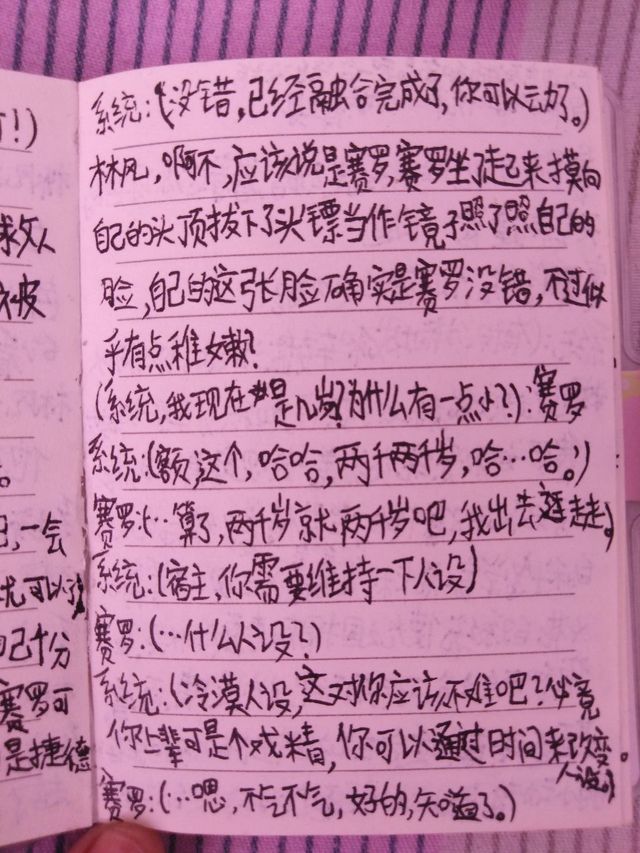 了!)
救人
被
。
吧,一会
就可以了
自己十分
赛罗可
是捷德
系统:(没错,已经融合完成了,你可以动了。)
林凡,啊不,应该说是赛罗,赛罗坐了起来摸向
自己的头顶拔下了头镖当作镜子照了照自己的
脸,自己的这张脸确实是赛罗没错,不过似
乎有点稚嫩?
(系统,我现在是几岁?为什么有一点小?):赛罗
系统:(额,这个,哈哈,两千两千岁,哈…哈。)
赛罗:(…算了,两千岁就两千岁吧,我出去逛走走。)
系统:(宿主,你需要维持一下人设)
赛罗:(…什么人设?)
系统:(冷漠人设,这对你应该不难吧?必竟
你上辈可是个戏精,你可以通过时间来改变
人设。)
赛罗:(…嗯,不气不气,好的,知道了。)